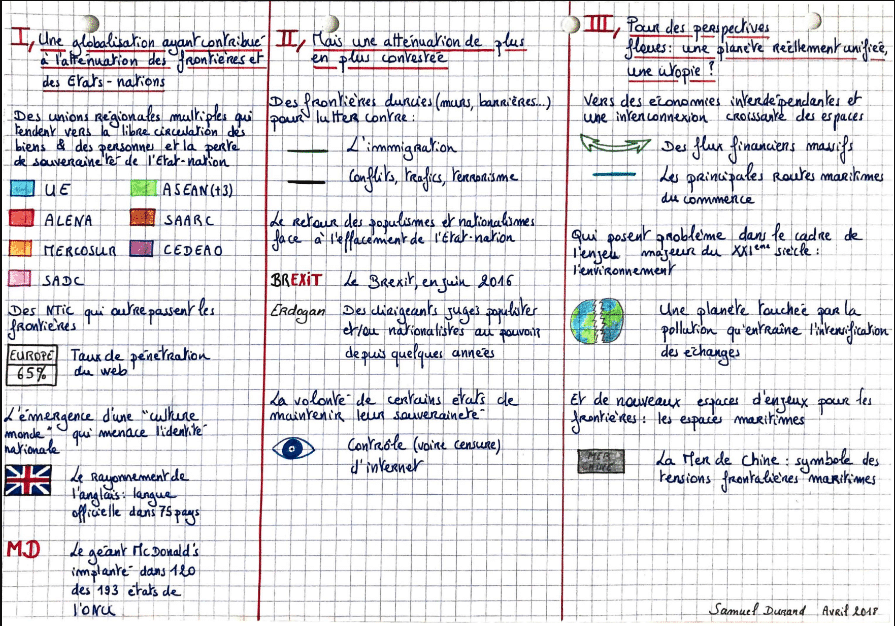 I, Une globalisation ayant contribué
à l'atténuation des frontières et
des Etats-nations
Des unions régionales multiples qui
tendent vers la libre circulation des
biens & des personnes et la perte
de souveraineté de l'Etat-nation
UE
ASEAN(+3)
ALENA
SAARC
MERCOSUR
CEDEAO
SADC
Des NTIC qui outrepassent les
frontières
EUROPE
65%
Taux de pénétration
du web
L'émergence d'une "culture
monde" qui menace l'identité
nationale
Le rayonnement de
l'anglais : langue
officielle dans 75 pays
MD
Le géant McDonald's
implanté dans 120
des 193 états de
l'ONU
II, Mais une atténuation de plus
en plus contestée
Des frontières durcies (murs, barrières...)
pour lutter contre :
L'immigration
Conflits, trafics, terrorisme
Le retour des populismes et nationalismes
face à l'effacement de l'Etat-nation
BREXIT
Le Brexit, en juin 2016
Erdogan
Des dirigeants jugés populistes
et/ou nationalistes au pouvoir
depuis quelques années
La volonté de certains états de
maintenir leur souveraineté
Contrôle (voire censure)
d'internet
III, Pour des perspectives
floues : une planète réellement unifiée,
une utopie ?
Vers des économies interdépendantes et
une interconnexion croissante des espaces
Des flux financiers massifs
Les principales routes maritimes
du commerce
Qui posent problème dans le cadre de
l'enjeu majeur du XXIème siècle :
l'environnement
Une planète touchée par la
pollution qu'entraîne l'intensification
des échanges
Et de nouveaux espaces d'enjeux pour les
frontières : les espaces maritimes
MER
CHINE
La Mer de Chine : symbole des
tensions frontalières maritimes
Samuel Durand Avril 2018